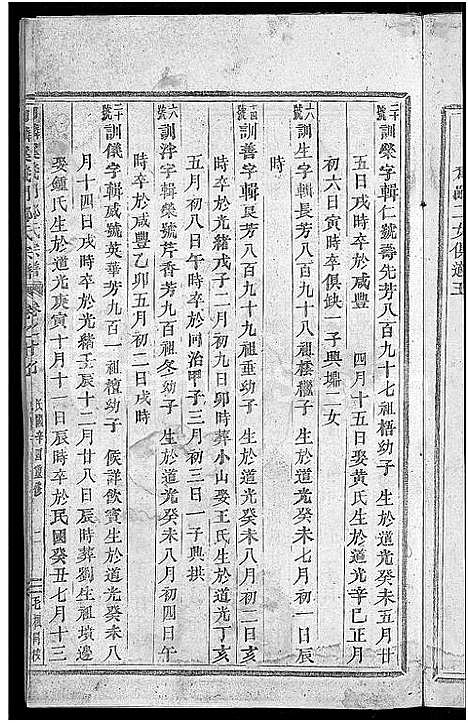 二十號訓榮字輯仁號壽先芳八百九十七祖梧幼子 生於道光癸未五月廿
五日戌時卒於咸豐 四月十五日娶黃氏生於道光辛巳正月
初六日寅時卒俱缺一子興墦二女
六八號訓生字輯長芳八百九十八祖 子 生於道光癸未七月初一日辰
時
十四號訓善字輯良芳八百九十九祖垂幼子 生於道光癸未八月初二日亥
時卒於光緒戊子二月初九日卯時葬小山娶王氏生於道光丁亥
五月初八日午時卒於同治甲子三月初三日一子典拱
六八號訓泮字輯榮號芹香芳九百祖冬幼子 生於道光癸未八月初四日午
時卒於咸豐乙卯五月初二日戌時
二十號訓儀字輯威號英華芳九百一祖檀幼子 候詳飲賓生於道光癸未八
月十四日戌時卒於光緒壬辰十二月廿八日辰時葬劉生祖墳邊
娶鍾氏生於道光庚寅十月十一日辰時卒於民國癸丑七月十三
義門鄭氏宗譜
民國辛酉重修
二